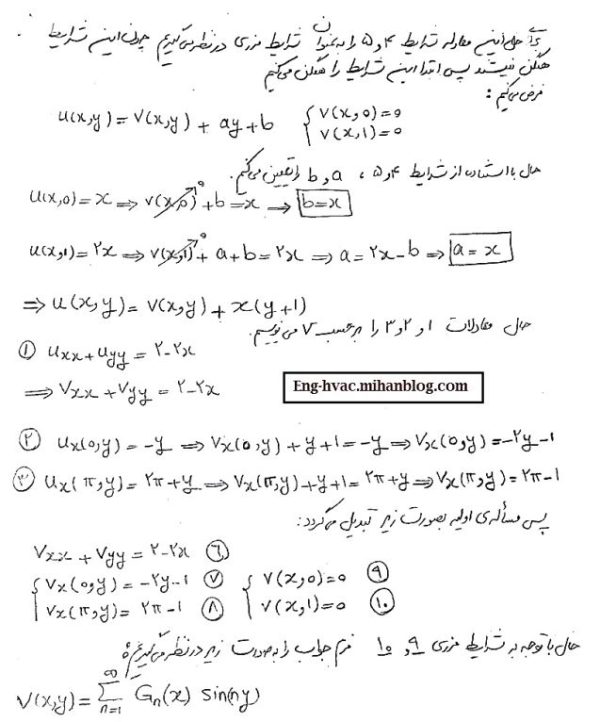 برای حل این معادله شرایط ۴ و ۵ را به عنوان شرایط مرزی در نظر می‌گیریم چون این شرایط
همگن نیستند پس ابتدا این شرایط را همگن می‌کنیم
فرض می‌کنیم :
u(x,y) = v(x,y) + ay + b { v(x,0) = 0
v(x,1) = 0
حال با استفاده از شرایط ۴ و ۵ ، a و b را تعیین می‌کنیم.
u(x,0) = x ⇒ v(x,0)⁰ + b = x → b = x
u(x,1) = ۲x ⇒ v(x,1)⁰ + a + b = ۲x ⇒ a = ۲x - b ⇒ a = x
⇒ u(x,y) = v(x,y) + x(y+1)
حال معادلات ۱ و ۲ و ۳ را برحسب v می‌نویسیم.
① uxx + uyy = ۲ - ۲x
⇒ Vxx + Vyy = ۲ - ۲x
Eng-hvac.mihanblog.com
② ux(0,y) = -y ⇒ Vx(0,y) + y + 1 = -y ⇒ Vx(0,y) = -۲y - 1
③ ux(π,y) = ۲π + y ⇒ Vx(π,y) + y + 1 = ۲π + y ⇒ Vx(π,y) = ۲π - 1
پس مسأله‌ی اولیه بصورت زیر تبدیل می‌گردد:
Vxx + Vyy = ۲ - ۲x ⑥
{ Vx(0,y) = -۲y - 1 ⑦ { V(x,0) = 0 ⑨
Vx(π,y) = ۲π - 1 ⑧ V(x,1) = 0 ⑩
حال با توجه به شرایط مرزی ۹ و ۱۰ فرم جواب را به صورت زیر در نظر می‌گیریم:
V(x,y) = Σ_{n=1}^{∞} Gn(x) sin(ny)